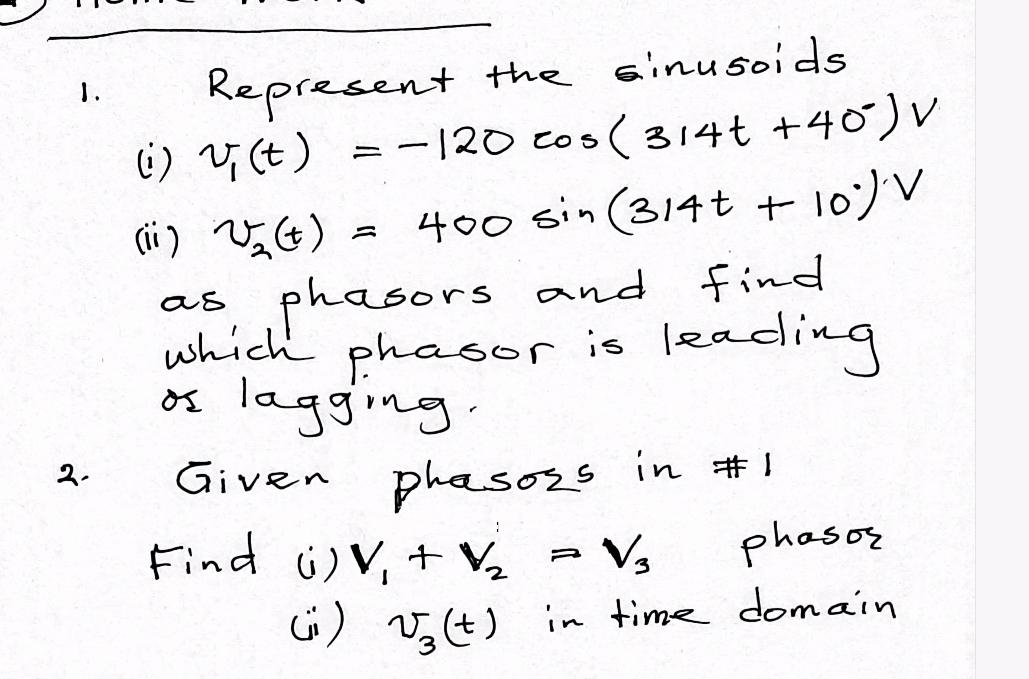 1. Represent the sinusoids
(i) v₁(t) = -120 cos(314t +40°) V
(ii) v₂(t) = 400 sin(314t + 10°) V
as phasors and find
which phasor is leading
or lagging.
2. Given phasors in #1
Find (i) V₁ + V₂ = V₃ phasor
(ii) v₃(t) in time domain